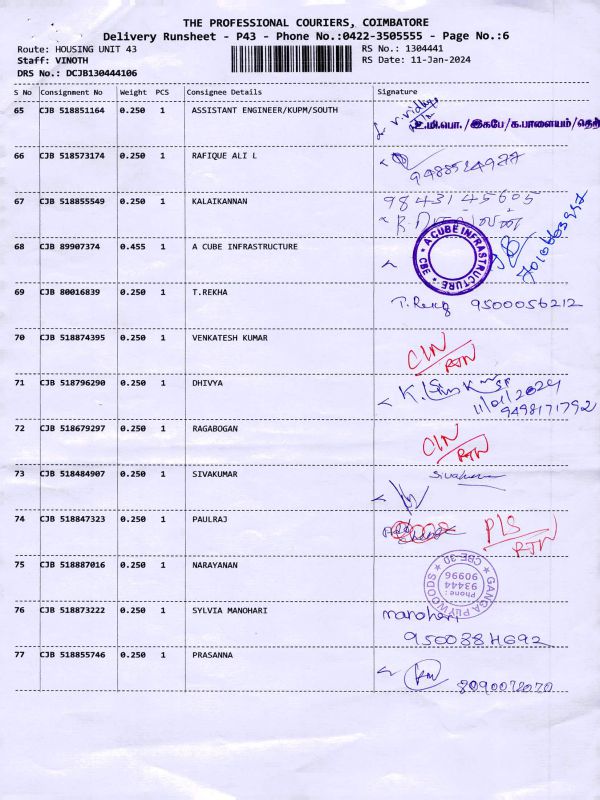 THE PROFESSIONAL COURIERS, COIMBATORE
Delivery Runsheet - P43 - Phone No.:0422-3505555 - Page No.:6
Route: HOUSING UNIT 43
Staff: VINOTH
DRS No.: DCJB130444106
RS No.: 1304441
RS Date: 11-Jan-2024
S No Consignment No Weight PCS Consignee Details Signature
65 CJB 518851164 0.250 1 ASSISTANT ENGINEER/KUPM/SOUTH
உ.மி.பொ./இகபே/க.பாளையம்/தெற்
66 CJB 518573174 0.250 1 RAFIQUE ALI L
9488524977
67 CJB 518855549 0.250 1 KALAIKANNAN 9843145605
68 CJB 89907374 0.455 1 A CUBE INFRASTRUCTURE
A CUBE INFRASTRUCTURE
CBE
69 CJB 80016839 0.250 1 T.REKHA T. Rekha 9500056212
70 CJB 518874395 0.250 1 VENKATESH KUMAR CIN
RTN
71 CJB 518796290 0.250 1 DHIVYA
11/01/2024
9498171792
72 CJB 518679297 0.250 1 RAGABOGAN CIN
RTN
73 CJB 518484907 0.250 1 SIVAKUMAR Sivakumar
74 CJB 518847323 0.250 1 PAULRAJ PLS
RTN
75 CJB 518887016 0.250 1 NARAYANAN
GANGA PLYWOODS
CBE-30
Phone:
93444
90996
76 CJB 518873222 0.250 1 SYLVIA MANOHARI manohari
9500384692
77 CJB 518855746 0.250 1 PRASANNA
8090078070